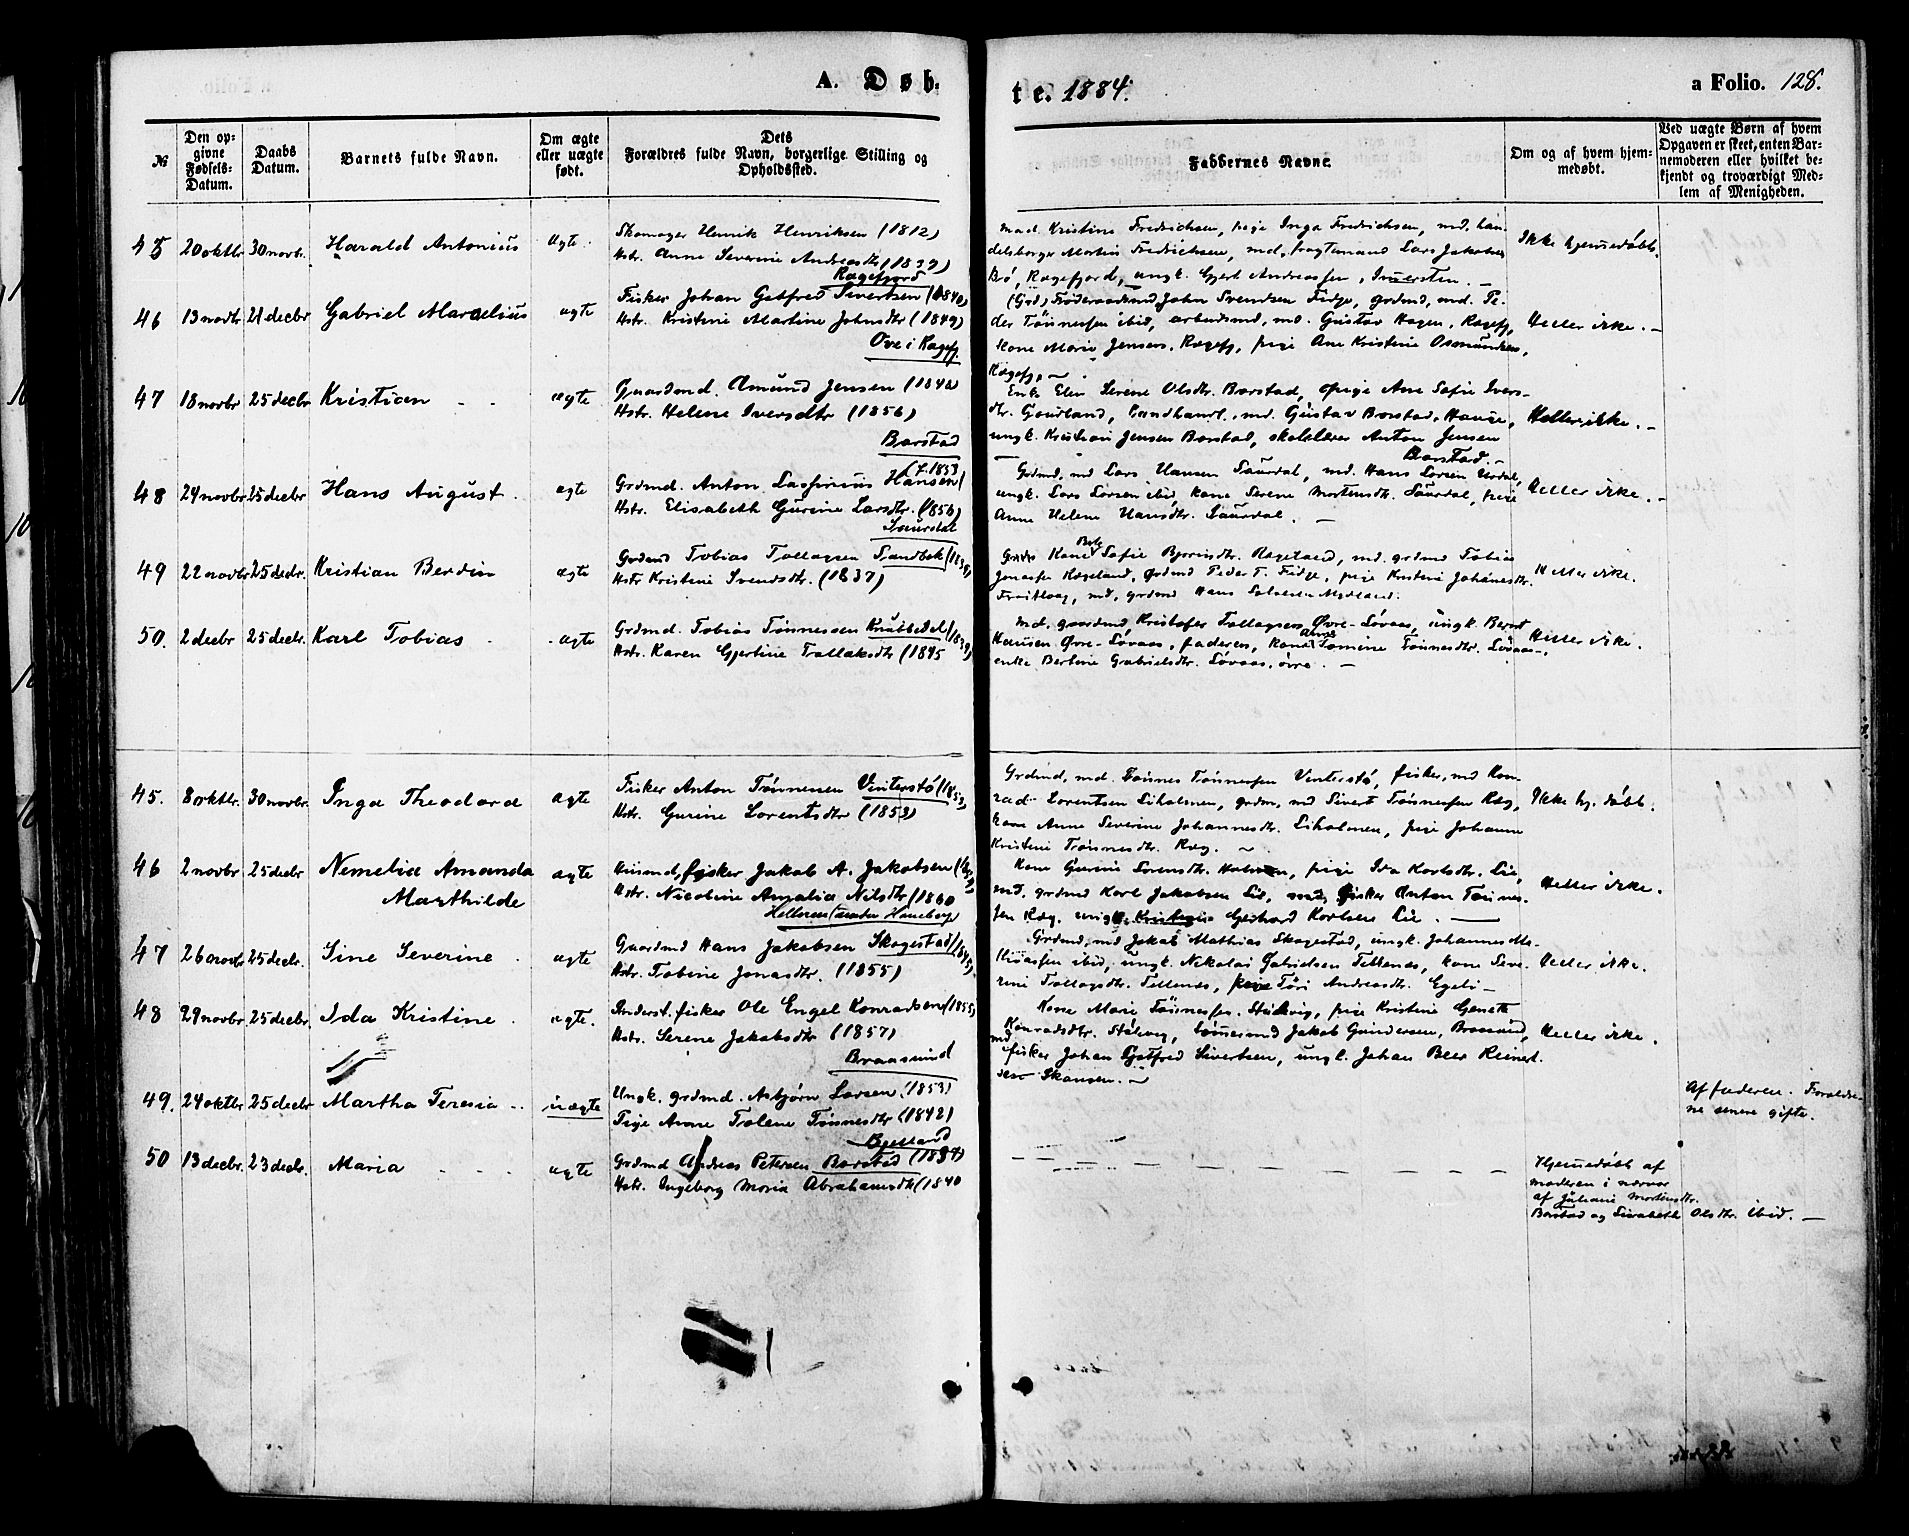 A. Døb-
te. 1884.
a Folio. 128.
№
Den opgivne Fødsels-Datum.
Daabs Datum.
Barnets fulde Navn.
Om ægte eller uægte født.
Dets
Forældres fulde Navn, borgerlige Stilling og
Opholdssted.
Faddernes Navne.
Om og af hvem hjemmedøbt.
Ved uægte Børn af hvem
Opgaven er skeet, enten Bar-
nemoderen eller hvilket be-
kjendt og troværdigt Med-
lem af Menigheden.
45 20 oktbr 30 novbr. Harald Antonius ægte
Skomager Henrik Henriksen (1812)
Hstr. Anne Severine Andreasdtr (1839)
Rægefjord
mad. Kristine Fredrichsen, pige Inga Fredrichsen, md. han-
delsborger Martin Fredrichsen, md. fragtemand Lars Jakobsen
Bø, Rægefjord, ungk. Gjert Andreassen,
Ikke hjemmedøbt.
46 13 novbr 21 decbr Gabriel Marselius ægte
Fisker Johan Gotfred Sivertsen (1840)
Hstr. Kristine Martine Johnsdtr (1849)
Ove i Rægefj.
Føderaadsmd John Svendsen Fidje, grdmd, md. Pe-
der Tønnessen ibid, arbeidsmd, md. Gustav Hagen, Rægefj,
kone Marie Jensen, Rægefj, pige Ane Kristine Osmundsen,
Rægefj. —
Heller ikke. —
47 18 novbr 25 decbr Kristian - - ægte
Gaardmd. Amund Jensen (1848)
Hstr. Helene Iversdtr (1856)
Barstad
Enke Elen Serene Olsdtr. Barstad, pige Ane Sofie Ivers-
dtr. Gaudland, Landhandl. md. Gustav Barstad, Hauge,
ungk. Kristian Jensen Barstad, skolelærer Anton Jensen
Barstad. —
Heller ikke. —
48 24 novbr 25 decbr Hans August. ægte
(f. 1853
Grdmd. Anton Hansen
Hstr. Elisabeth Gurine Larsdtr. (1856)
Saurdal
Grdmd, md Lars Hansen Saurdal, md. Hans Larsen Urdal,
ungk. Lars Larsen ibid, kone Serene Mortensdtr. Saurdal, pige
Anne Helene Hansdtr. Saurdal. —
Heller ikke. —
49 22 novbr 25 decbr. Kristian Berdin ægte
Grdmd Tobias Tollagsen Sandbek (1839)
Hstr Kristine Svendsdtr. (1837)
Kone Sofie Bjørnsdtr. Rægeland, md. grdmd Tobias
Jonassen Rægeland, Grdmd Peder T. Fidje, pige Kristine Johannesdtr.
md, grdmd Hans Mydland.
Heller ikke.
50. 2 decbr 25 decbr. Karl Tobias - ægte
Grdmd. Tobias Tønnessen (1839)
Hstr. Karen Gjertine Tollaksdtr (1845
md. gaardmd Kristofer Tollagsen Øvre-Løvaas, ungk. Bernt
Hansen Øvre-Løvaas, faderen, kone Anne Tomine Tønnesdtr. Løvaas-,
enke Bertine Gabrielsdtr. Løvaas, øvre. —
Heller ikke.
45. 8 oktbr. 30 novbr. Inga Theodora ægte
Fisker Anton Tønnessen Vinterstø (1853)
Hstr. Gurine Lorentsdtr (1853)
Grdmd, md. Tønnes Tønnessen Vinterstø, fisker, md Kon-
rad Lorentsen Liholmen, grdm, md Sivert Tønnessen Ræg,
kone Anne Severine Johannesdtr. Liholmen, pige Johanne
Kristine Tønnesdtr. Ræg. —
Ikke hj. døbt.
46 2 novbr 25 decbr Nemelia Amanda
Marthilde
ægte
Husmd, fisker Jakob A. Jakobsen
Hstr. Nicoline Amalia Nilsdtr (1860
Helleren
Kone Gurine Lorensdtr. Holmen, pige Ida Karlsdtr. Lie,
md. grdmd Karl Jakobsen Lie, md, fisker Anton Tønnes-
sen Ræg, ungk. Gerhard Karlsen Lie. —
Heller ikke.
47 26 novbr 25 decbr. Sine Severine. ægte
Gaardmd Hans Jakobsen Skogestad
Hstr. Tobine Jonasdtr. (1855)
Grdmd, md Jakob Mathias Skogestad, ungk. Johannes
ibid, ungk. Nikolai Gabrielsen Tellenes, kone Seve-
rine Tollagsdtr. Tellenes, pige Tøri Andreasdtr. Egeli —
Heller ikke.
48 29 novbr. 25 decbr. Ida Kristine. ægte.
fisker Ole Engel Konradsen (1855)
Hstr. Serene Jakobsdtr (1857)
Braasund
Kone Marie Tønnessen, pige Kristine
Konradsdtr. Stølevig, tømmermd Jakob Gundersen, Braasund,
md fisker Johan Gotfred Sivertsen, ungk. Johan Beer Reinert-
sen Skansen. —
Heller ikke.
49. 24 oktbr 25 decbr Martha Teresia .. uægte
Ungk. grdmd. Asbjørn Larsen (1853)
Pige Anne Tolene Tønnesdtr (1842)
Bjelland
Af faderen. Forældre-
ne senere gifte.
50 13 decbr. 23 decbr. Maria - - - ægte
Grdmd Andreas Petersen Barstad (1834)
Hstr. Ingeborg Maria Abrahamsdtr (1840
Hjemmedøbt af
moderen i nærvær
af Juliane Mortensdtr.
Barstad og Lisabeth Olsdtr. ibid. —